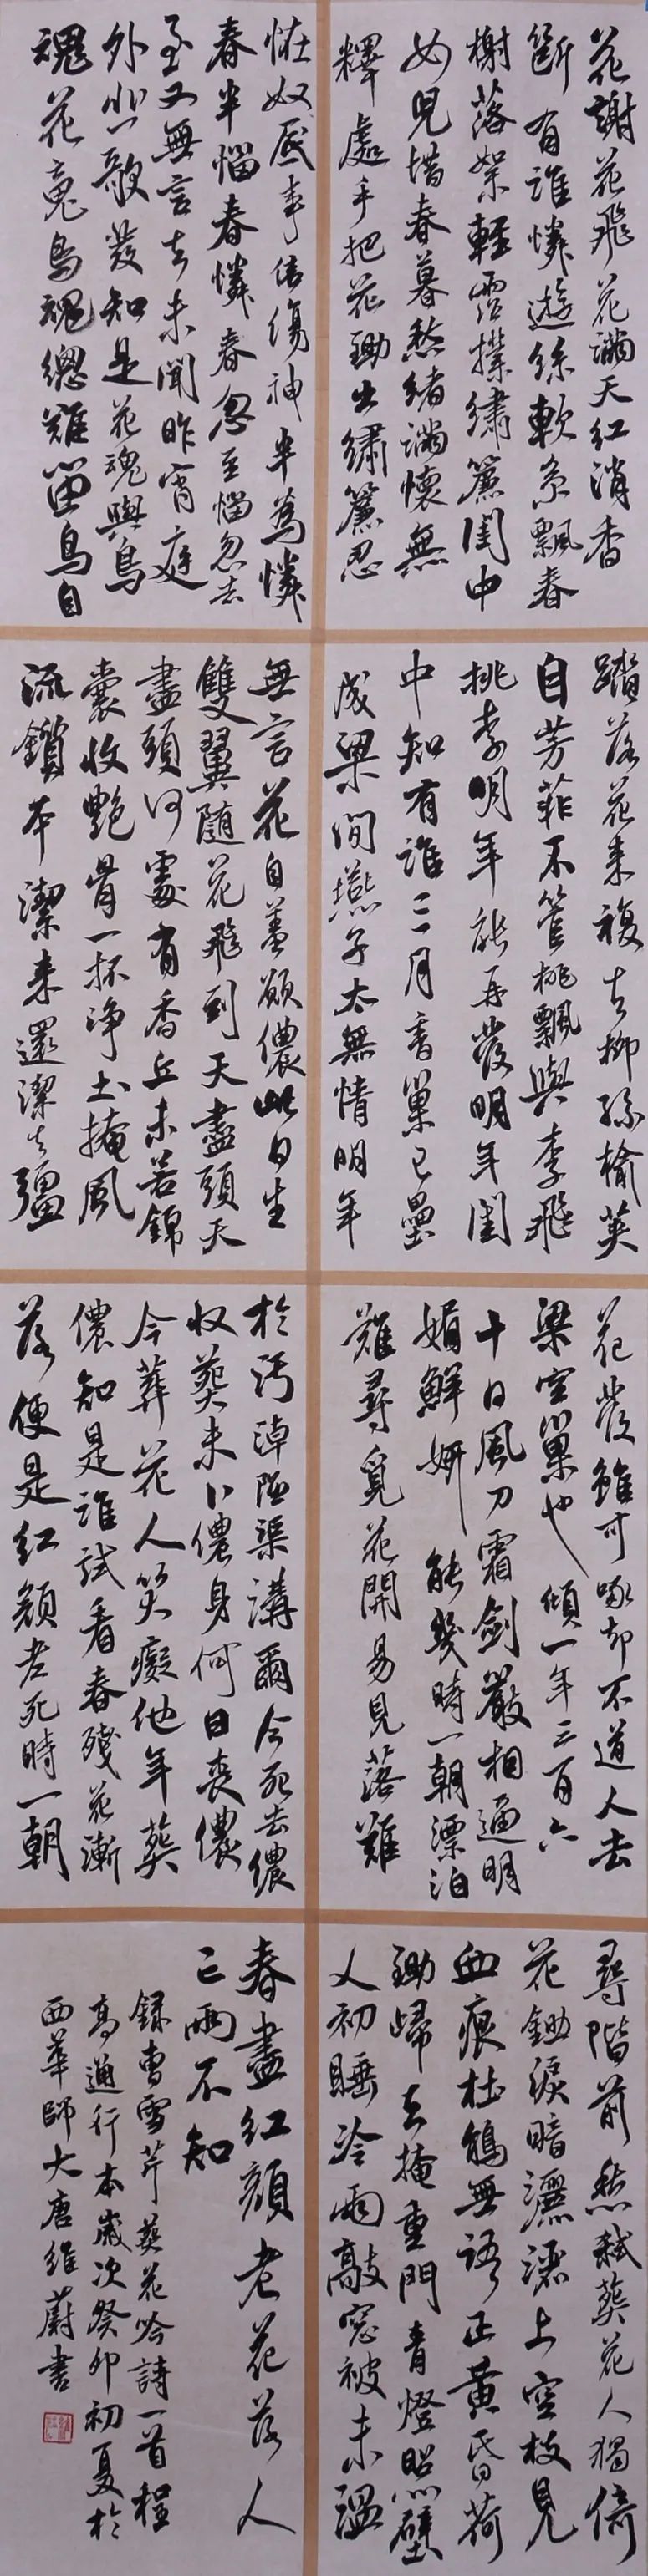 花謝花飛花滿天紅消香
斷有誰憐遊絲軟系飄春
榭落絮輕霑撲繡簾閨中
女兒惜春暮愁緒滿懷無
釋處手把花鋤出繡簾忍
踏落花來複去柳絲榆莢
自芳菲不管桃飄與李飛
桃李明年能再發明年閨
中知有誰三月香巢已壘
成梁間燕子太無情明年
花發雖可啄却不道人去
梁空巢也傾一年三百六
十日風刀霜劍嚴相逼明
媚鮮妍能幾時一朝漂泊
難尋覓花開易見落難
尋階前愁弒葬花人獨倚
花鋤淚暗灑灑上空枝見
血痕杜鵑無語正黃昏荷
鋤歸去掩重門青燈照壁
人初睡冷雨敲窗被未溫
怪奴底事倍傷神半為憐
春半惱春憐春忽至惱忽去
至又無言去未聞昨宵庭
外悲歌發知是花魂與鳥
魂花魂鳥魂總難留鳥自
無言花自羞願儂此日生
雙翼隨花飛到天盡頭天
盡頭何處有香丘未若錦
囊收艷骨一抔淨土掩風
流質本潔來還潔去彊
於污淖陷渠溝爾今死去儂
收葬未卜儂身何日喪儂
今葬花人笑癡他年葬
儂知是誰試看春殘花漸
落便是紅顏老死時一朝
春盡紅顏老花落人
亡兩不知
録曹雪芹葬花吟詩一首程
高通行本歲次癸卯初夏於
西華師大唐維蔚書